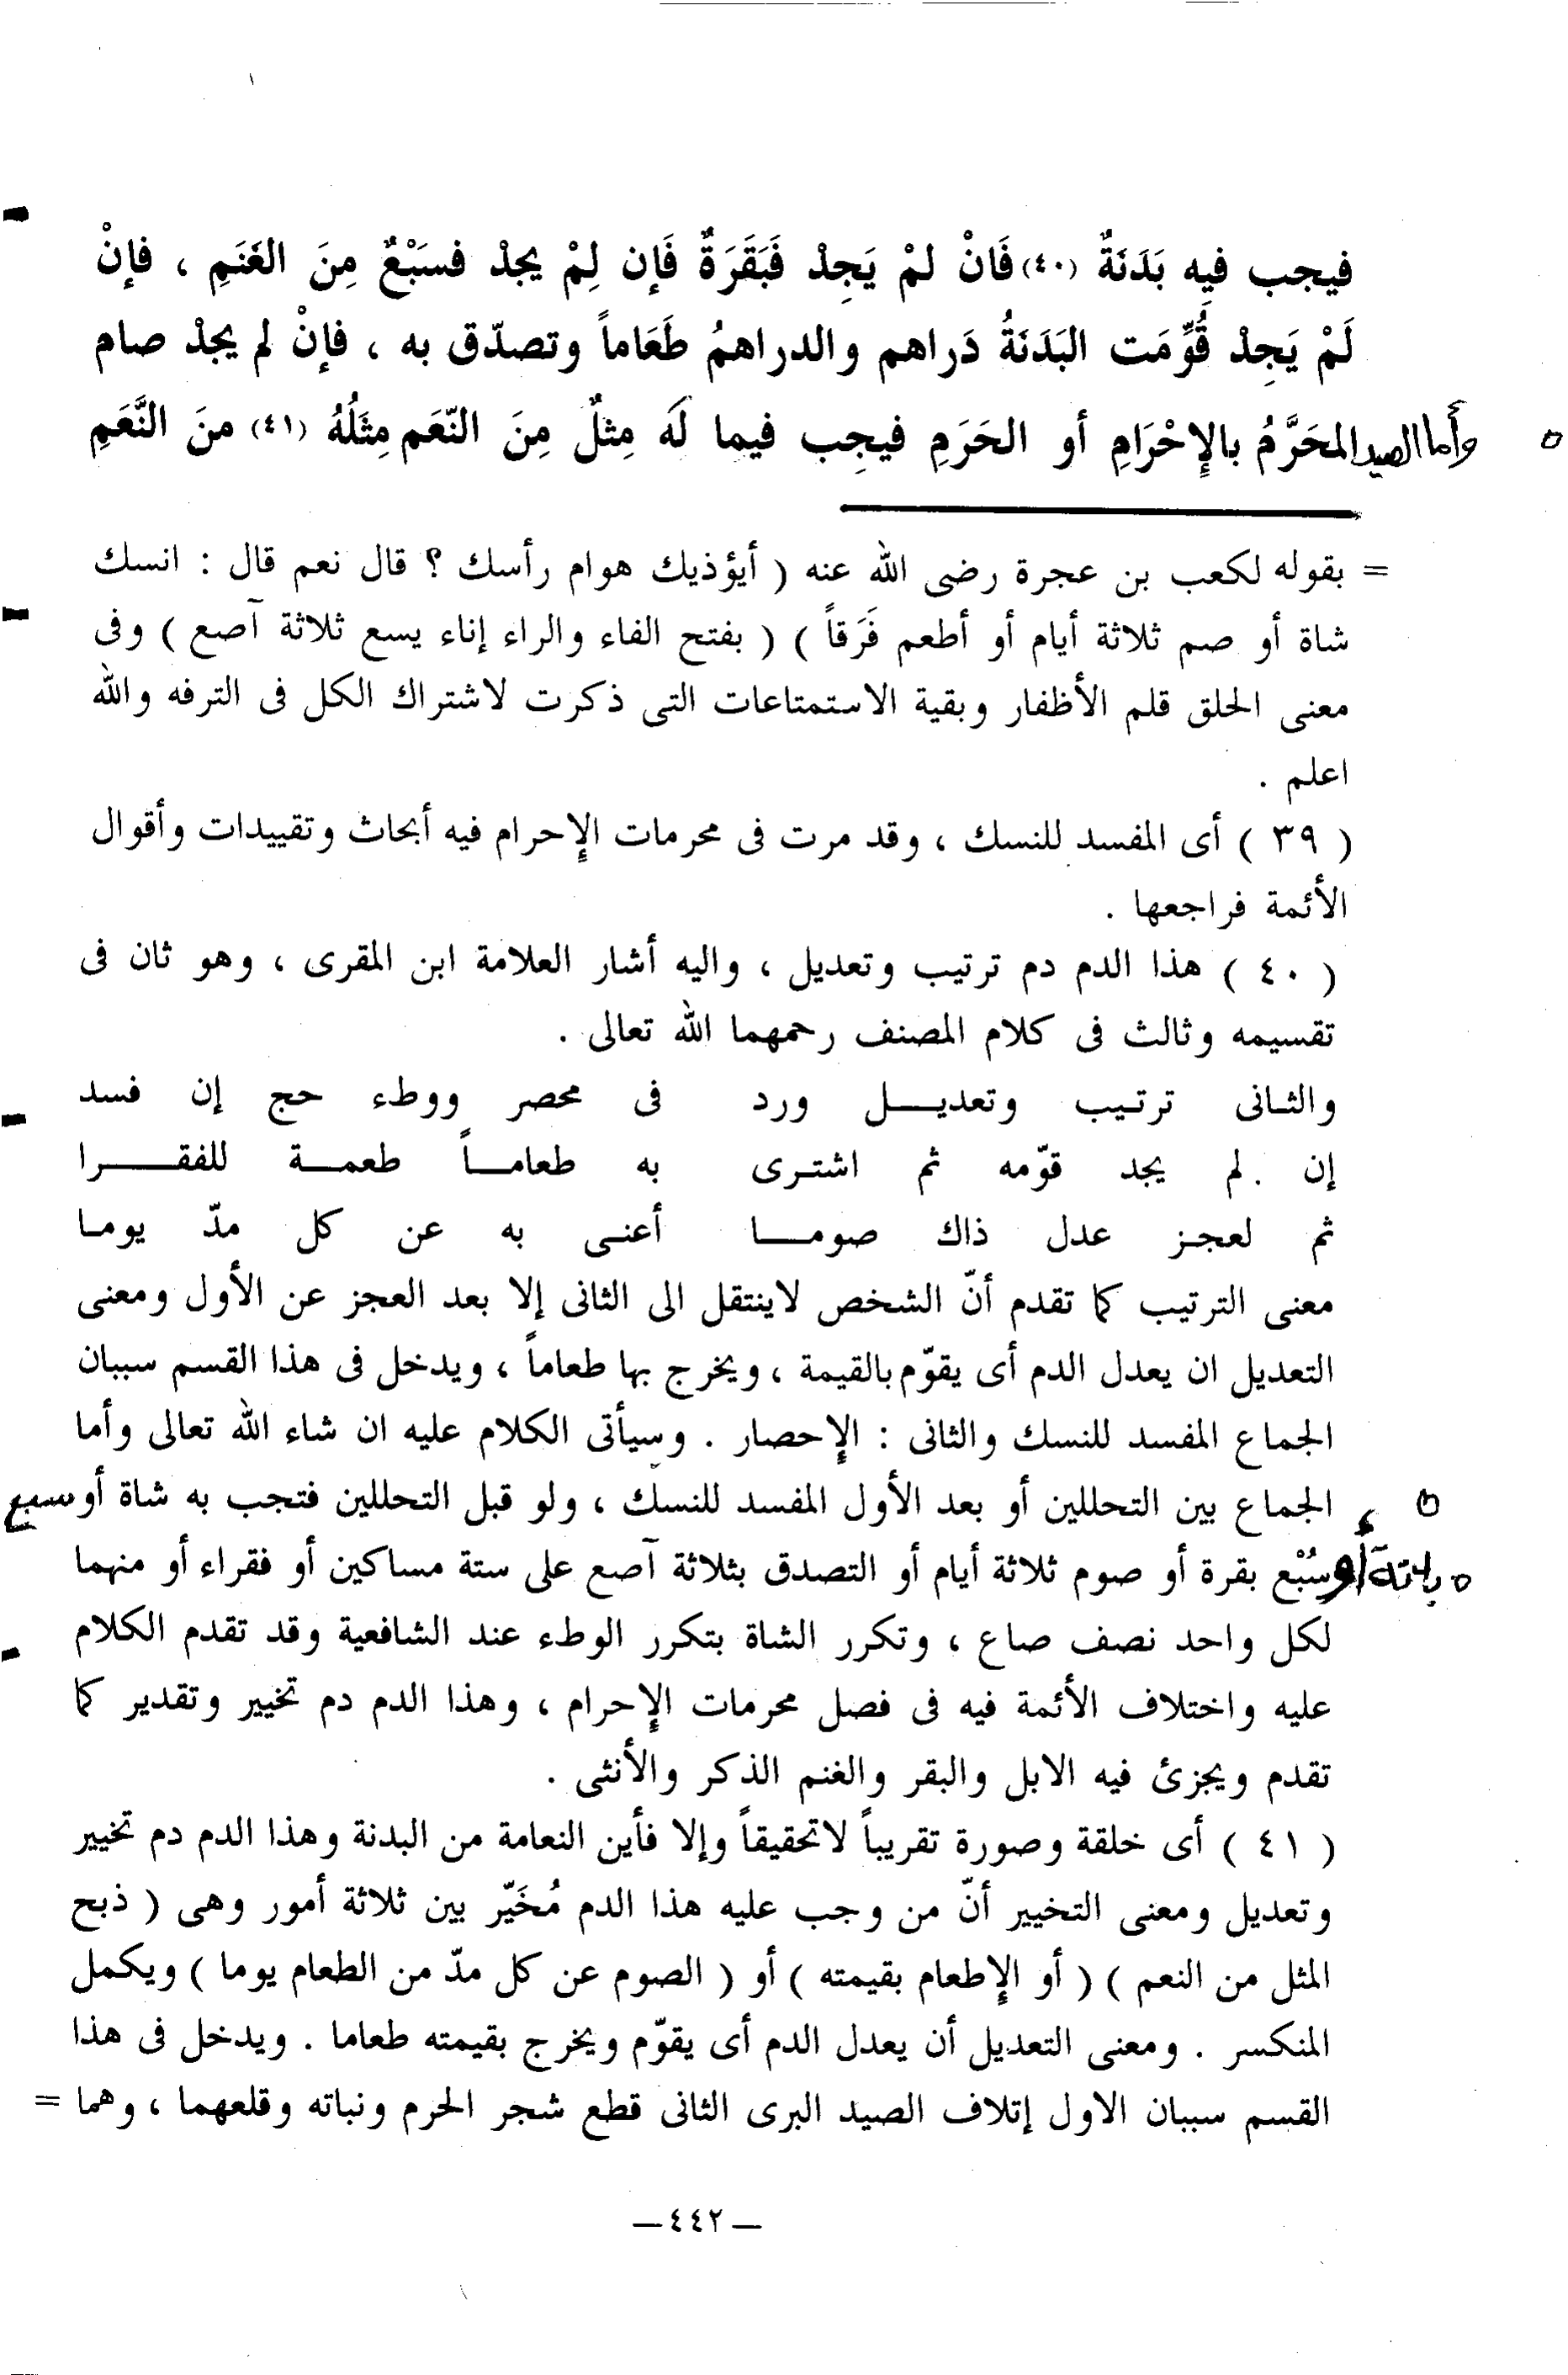 فيجب فيه بَدَنَةٌ (٤٠) فَانْ لمْ يَجِدْ فَبَقَرَةٌ فَإن لِمْ يجدْ فسَبْعٌ مِنَ الغَنَمِ ، فإنْ
لَمْ يَجِدْ قُوِّمَت البَدَنَةُ دَراهم والدراهمُ طَعَاماً وتصدّق به ، فإنْ لم يجدْ صام
وأما الصيد المحَرَّمُ بالإحْرَامِ أو الحَرَمِ فيجِب فيما لَه مِثلٌ مِنَ النّعَم مِثَلُهُ (٤١) منَ النَّعَمِ
= بقوله لكعب بن عجرة رضى الله عنه ( أيؤذيك هوام رأسك ؟ قال نعم قال : انسك
شاة أو صم ثلاثة أيام أو أطعم فَرَقاً ) ( بفتح الفاء والراء إناء يسع ثلاثة آصع ) وفى
معنى الحلق قلم الأظفار وبقية الاستمتاعات التى ذكرت لاشتراك الكل فى الترفه والله
اعلم .
( ٣٩ ) أى المفسد للنسك ، وقد مرت فى محرمات الإحرام فيه أبحاث وتقييدات وأقوال
الأئمة فراجعها .
( ٤٠ ) هذا الدم دم ترتيب وتعديل ، واليه أشار العلامة ابن المقرى ، وهو ثان فى
تقسيمه وثالث فى كلام المصنف رحمهما الله تعالى .
والثـانى ترتـيب وتعديـــل ورد فى محصر ووطء حج إن فسد
إن لم يجد قوّمه ثم اشتـرى به طعامــاً طعمــة للفقــــرا
ثم لعجـز عدل ذاك صومــــا أعنـى به عن كل مدّ يومـا
معنى الترتيب كما تقدم أنّ الشخص لاينتقل الى الثانى إلا بعد العجز عن الأول ومعنى
التعديل ان يعدل الدم أى يقوّم بالقيمة ، ويخرج بها طعاماً ، ويدخل فى هذا القسم سببان
الجماع المفسد للنسك والثانى : الإحصار . وسيأتى الكلام عليه ان شاء الله تعالى وأما
الجماع بين التحللين أو بعد الأول المفسد للنسك ، ولو قبل التحللين فتجب به شاة أو سبع
بدنة أو سُبْع بقرة أو صوم ثلاثة أيام أو التصدق بثلاثة آصع على ستة مساكين أو فقراء أو منهما
لكل واحد نصف صاع ، وتكرر الشاة بتكرر الوطء عند الشافعية وقد تقدم الكلام
عليه واختلاف الأئمة فيه فى فصل محرمات الإحرام ، وهذا الدم دم تخيير وتقدير كما
تقدم ويجزئ فيه الابل والبقر والغنم الذكر والأنثى .
( ٤١ ) أى خلقة وصورة تقريباً لاتحقيقاً وإلا فأين النعامة من البدنة وهذا الدم دم تخيير
وتعديل ومعنى التخيير أنّ من وجب عليه هذا الدم مُخَيّر بين ثلاثة أمور وهى ( ذبح
المثل من النعم ) ( أو الإطعام بقيمته ) أو ( الصوم عن كل مدّ من الطعام يوما ) ويكمل
المنكسر . ومعنى التعديل أن يعدل الدم أى يقوّم ويخرج بقيمته طعاما . ويدخل فى هذا
القسم سببان الاول إتلاف الصيد البرى الثانى قطع شجر الحرم ونباته وقلعهما ، وهما =
— ٤٤٢ —